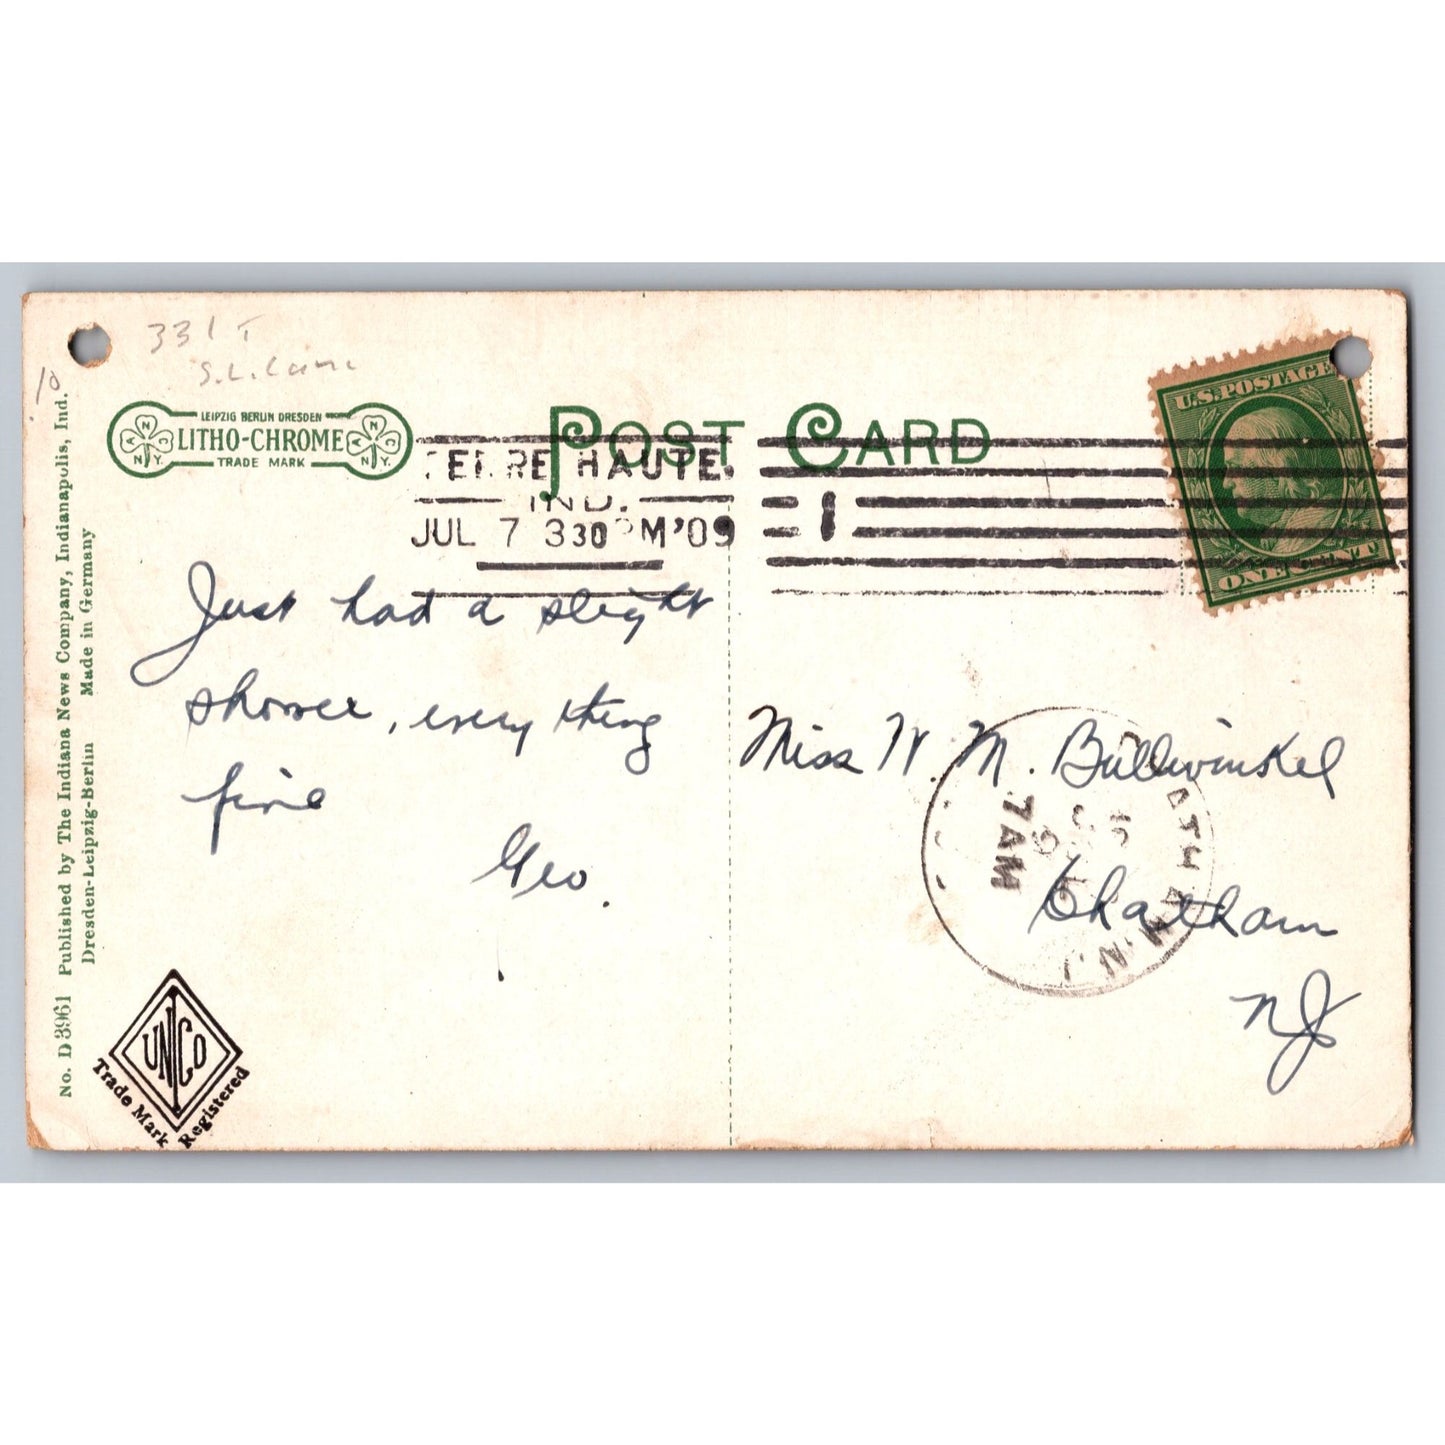 331 T
10
LEIPZIG BERLIN DRESDEN
LITHO-CHROME
TRADE MARK
A N C
N.Y.
A N C
N.Y.
POST CARD
TERRE HAUTE,
IND.
JUL 7 330 PM '09
1
U.S. POSTAGE
ONE CENT
Just had a slight
shower, every thing
fine
Geo.
Miss W. M. Bullwinkel
Chatham
NJ
7 AM
CHATHAM, N.J.
No. D 3961 Published by The Indiana News Company, Indianapolis, Ind.
Dresden-Leipzig-Berlin Made in Germany
UNICO
Trade Mark Registered